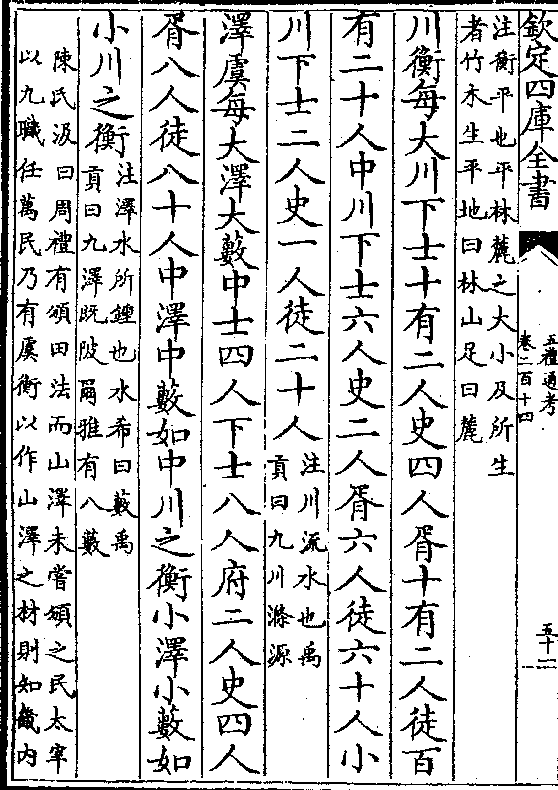 欽定四庫全書
五禮通考
卷二百十四
五十二
注衡平也平林麓之大小及所生
者竹木生平地曰林山足曰麓
川衡每大川下士十有二人史四人胥十有二人徒百
有二十人中川下士六人史二人胥六人徒六十人小
川下士二人史一人徒二十人
注川流水也禹
貢曰九川滌源
澤虞每大澤大藪中士四人下士八人府二人史四人
胥八人徒八十人中澤中藪如中川之衡小澤小藪如
小川之衡
注澤水所鍾也水希曰藪禹
貢曰九澤既陂爾雅有八藪
陳氏汲曰周禮有頒田法而山澤未嘗頒之民太宰
以九職任萬民乃有虞衡以作山澤之材則知畿内